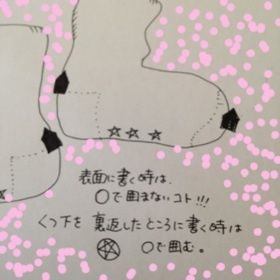 表面に書く時は、
○で囲まないコト!!!
くつ下を裏返したところに書く時は
○で囲む。